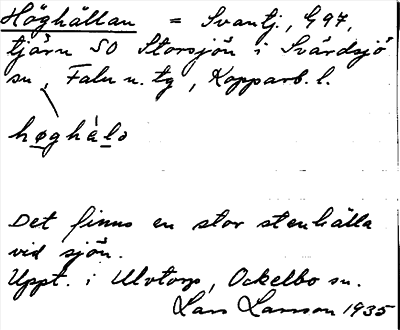 Höghällan = Svantj., G 97,
tjärn SO Storsjön i Svärdsjö
sn, Falu n. tg, Kopparb. l.
høghálə
Det finns en stor stenhälla
vid sjön.
Uppt. i Ulvtorp, Ockelbo sn.
Lars Larsson 1935